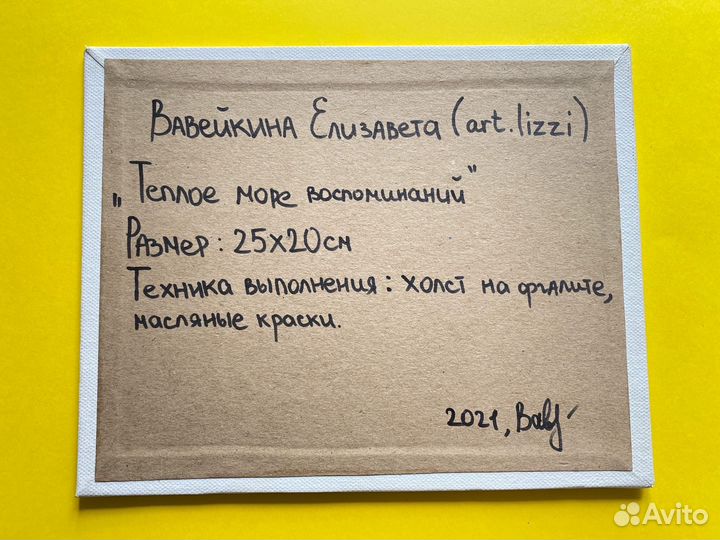 Вавейкина Елизавета (art.lizzi)
„Теплое море воспоминаний"
Размер: 25х20см
Техника выполнения: холст на оргалите,
масляные краски.
2021,
Avito